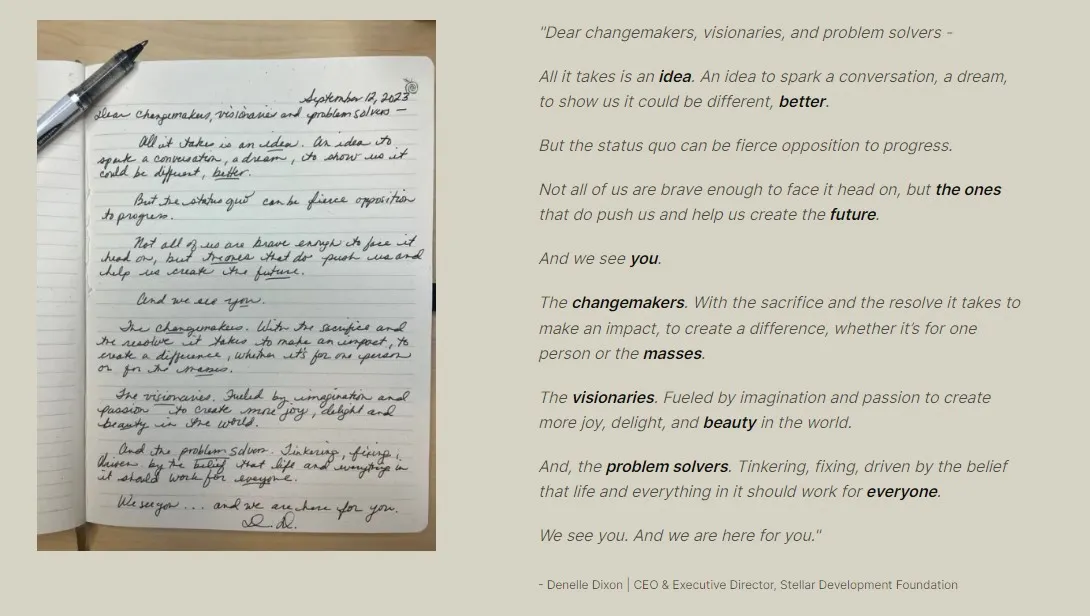 September 12, 2023
Dear changemakers, visionaries and problem solvers –
All it takes is an idea. An idea to
spark a conversation, a dream, to show us it
could be different, better.
But the status quo can be fierce opposition
to progress.
Not all of us are brave enough to face it
head on, but the ones that do push us and
help us create the future.
And we see you.
The changemakers. With the sacrifice and
the resolve it takes to make an impact, to
create a difference, whether it's for one person
or for the masses.
The visionaries. Fueled by imagination and
passion to create more joy, delight and
beauty in the world.
And the problem solvers. Tinkering, fixing,
driven by the belief that life and everything in
it should work for everyone.
We see you... and we are here for you.
D. D.
"Dear changemakers, visionaries, and problem solvers -
All it takes is an idea. An idea to spark a conversation, a dream,
to show us it could be different, better.
But the status quo can be fierce opposition to progress.
Not all of us are brave enough to face it head on, but the ones
that do push us and help us create the future.
And we see you.
The changemakers. With the sacrifice and the resolve it takes to
make an impact, to create a difference, whether it's for one
person or the masses.
The visionaries. Fueled by imagination and passion to create
more joy, delight, and beauty in the world.
And, the problem solvers. Tinkering, fixing, driven by the belief
that life and everything in it should work for everyone.
We see you. And we are here for you."
- Denelle Dixon | CEO & Executive Director, Stellar Development Foundation